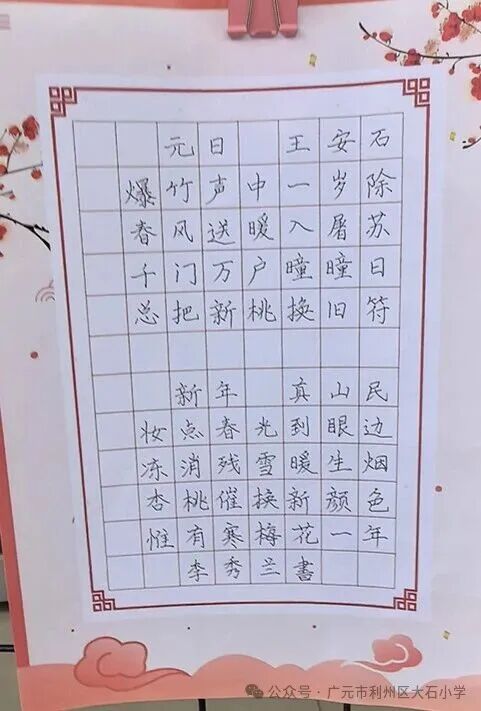 元日 王安石
爆竹声中一岁除
春风送暖入屠苏
千门万户曈曈日
总把新桃换旧符
新年 真山民
妆点春光到眼边
冻消残雪暖生烟
杏桃催换新颜色
惟有寒梅花一年
李秀兰書
公众号·广元市利州区大石小学